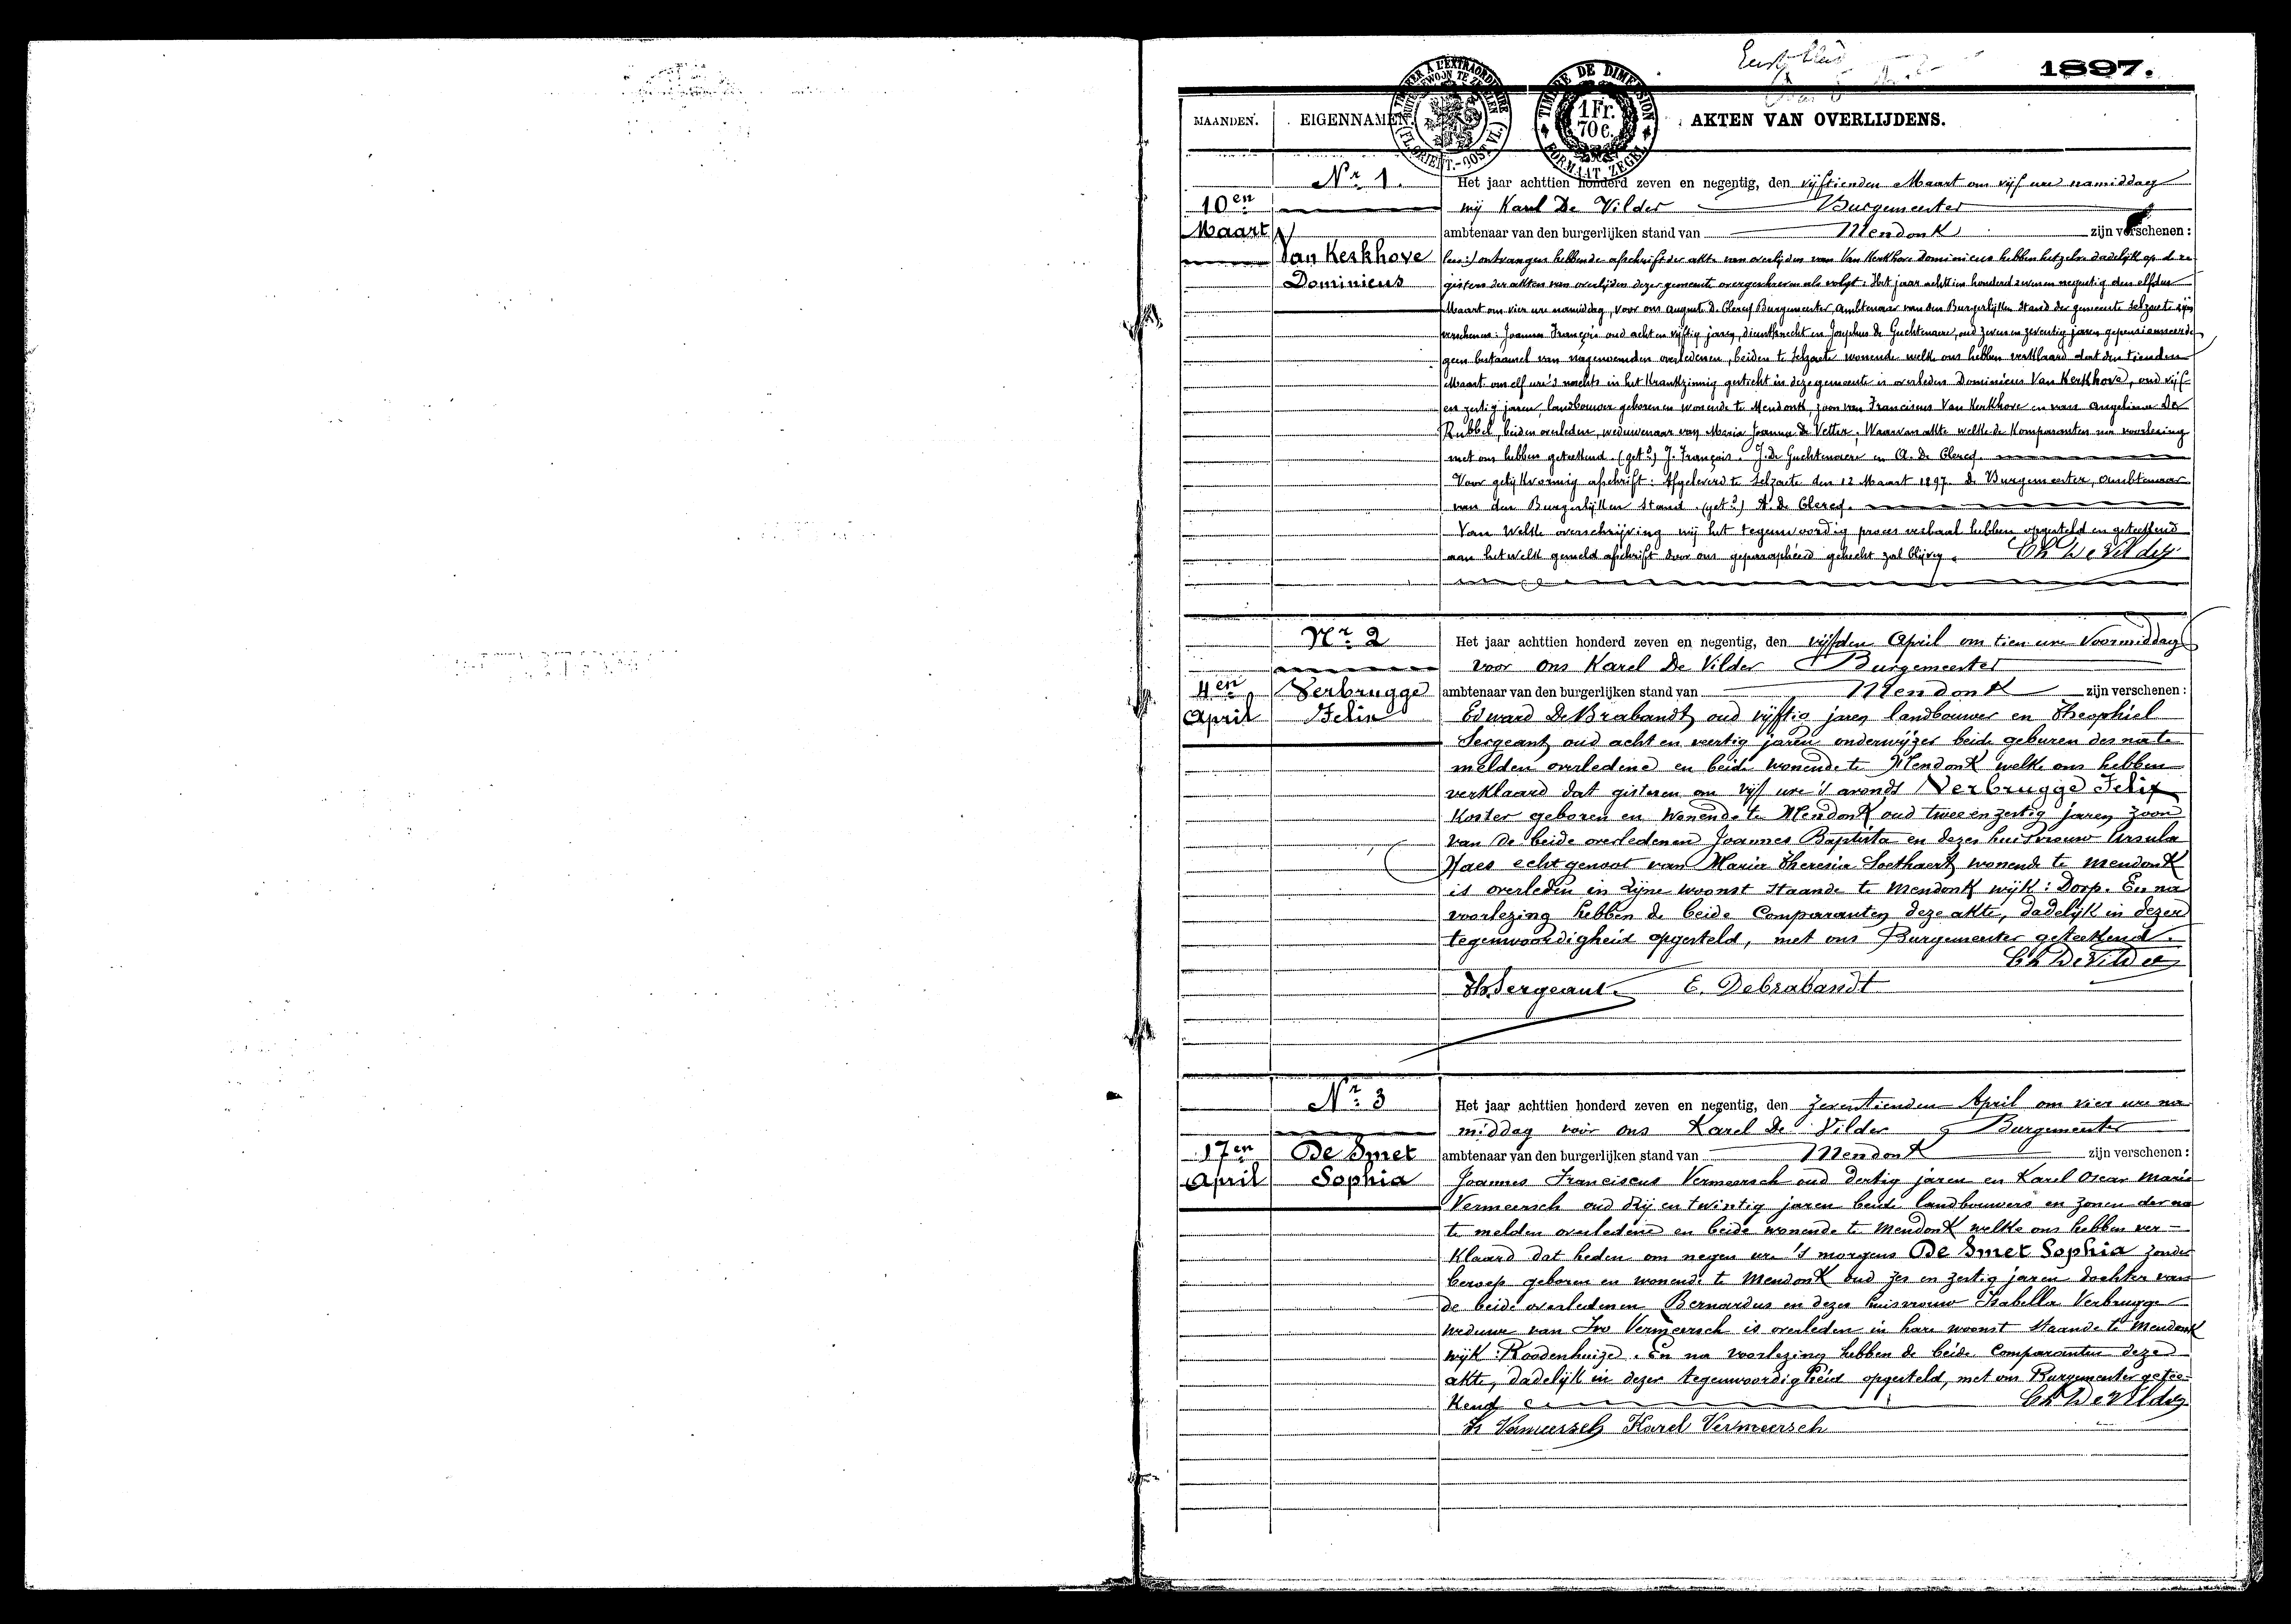 1897.
TIMBRER A L'EXTRAORDINAIRE
BUITENGEWOON TE ZEGELEN
(FL. ORIENT.-OOST VL.)
TIMBRE DE DIMENSION
1 Fr.
70 c.
FORMAAT ZEGEL
MAANDEN. EIGENNAMEN. AKTEN VAN OVERLIJDENS.
Nr 1.
10en
Maart
Van Kerkhove
Dominicus
Het jaar achttien honderd zeven en negentig, den vijftienden Maart om vijf ure namiddag
wij Karel De Vilder Burgemeester
ambtenaar van den burgerlijken stand van Mendonk zijn verschenen:
ontvangen hebbende afschrift der akte van overlijden van Van Kerkhove Dominicus hebben hetzelve dadelijk op de re
gisters der akten van overlijden dezer gemeente overgeschreven als volgt: Het jaar achttien honderd zeven en negentig den elfden
Maart om vier ure namiddag, voor ons August De Clercq Burgemeester, Ambtenaar van den Burgerlijken Stand der gemeente Selzaete zijn
verschenen: Joannes François oud acht en vijftig jaren, dienstknecht en Josephus De Guchtenaere, oud zeven en zeventig jaren gepensionneerde
geen bestaanel van nagenoemden overledenen, beiden te Selzaete wonende welke ons hebben verklaard dat den tienden
Maart om elf ure 's nachts in het Krankzinnig gesticht in deze gemeente is overleden Dominicus Van Kerkhove, oud vijf
en zestig jaren, landbouwer geboren en wonende te Mendonk, zoon van Franciscus Van Kerkhove en van Angelina De
Rubbel, beiden overleden, weduwenaar van Maria Joanna De Vetter. Waarvan akte welke de Komparanten na voorlezing
met ons hebben geteekend. (getd) J. François. J. De Guchtenaere en A. De Clercq.
Voor gelijkvormig afschrift: Afgeleverd te Selzaete den 12 Maart 1897. De Burgemeester, Ambtenaar
van den Burgerlijken Stand. (getd) A. De Clercq.
Van welke overschrijving wij het tegenwoordig proces verbaal hebben opgesteld en geteekend
aan hetwelk gemeld afschrift door ons geparapheerd gehecht zal blijven. Ch De Vilder
Nr 2
4en
April
Verbrugge
Felix
Het jaar achttien honderd zeven en negentig, den vijfden April om tien ure Voormiddag
voor ons Karel De Vilder Burgemeester
ambtenaar van den burgerlijken stand van Mendonk zijn verschenen:
Edward De Brabandt oud vijftig jaren landbouwer en Theophiel
Sergeant oud acht en veertig jaren onderwijzer beide geburen des na te
melden overledene en beide wonende te Mendonk welke ons hebben
verklaard dat gisteren om vijf ure 's avonds Verbrugge Felix
Koster geboren en wonende te Mendonk oud twee en zestig jaren zoon
van de beide overledenen Joannes Baptista en dezes huisvrouw Ursula
Haes echtgenoot van Maria Theresia Soethaert wonende te Mendonk
is overleden in zijne woonst staande te Mendonk wijk: Dorp. En na
voorlezing hebben de beide Comparanten deze akte, dadelijk in dezer
tegenwoordigheid opgesteld, met ons Burgemeester geteekend.
Ch De Vilder
Th. Sergeant. E. Debrabandt
Nr 3
17en
April
De Smet
Sophia
Het jaar achttien honderd zeven en negentig, den zeventienden April om vier ure na
middag voor ons Karel De Vilder Burgemeester
ambtenaar van den burgerlijken stand van Mendonk zijn verschenen:
Joannes Franciscus Vermeersch oud dertig jaren en Karel Oscar Marie
Vermeersch oud drij en twintig jaren beide landbouwers en zonen der na
te melden overledene en beide wonende te Mendonk welke ons hebben ver-
klaard dat heden om negen ure 's morgens De Smet Sophia zonder
beroep geboren en wonende te Mendonk oud zes en zestig jaren dochter van
de beide overledenen Bernardus en dezes huisvrouw Isabella Verbrugge
weduwe van Ivo Vermeersch is overleden in hare woonst staande te Mendonk
wijk: Roodenhuize. En na voorlezing hebben de beide Comparanten deze
akte, dadelijk in dezer tegenwoordigheid opgesteld, met ons Burgemeester getee-
kend Ch De Vilder
Vermeersch Karel Vermeersch